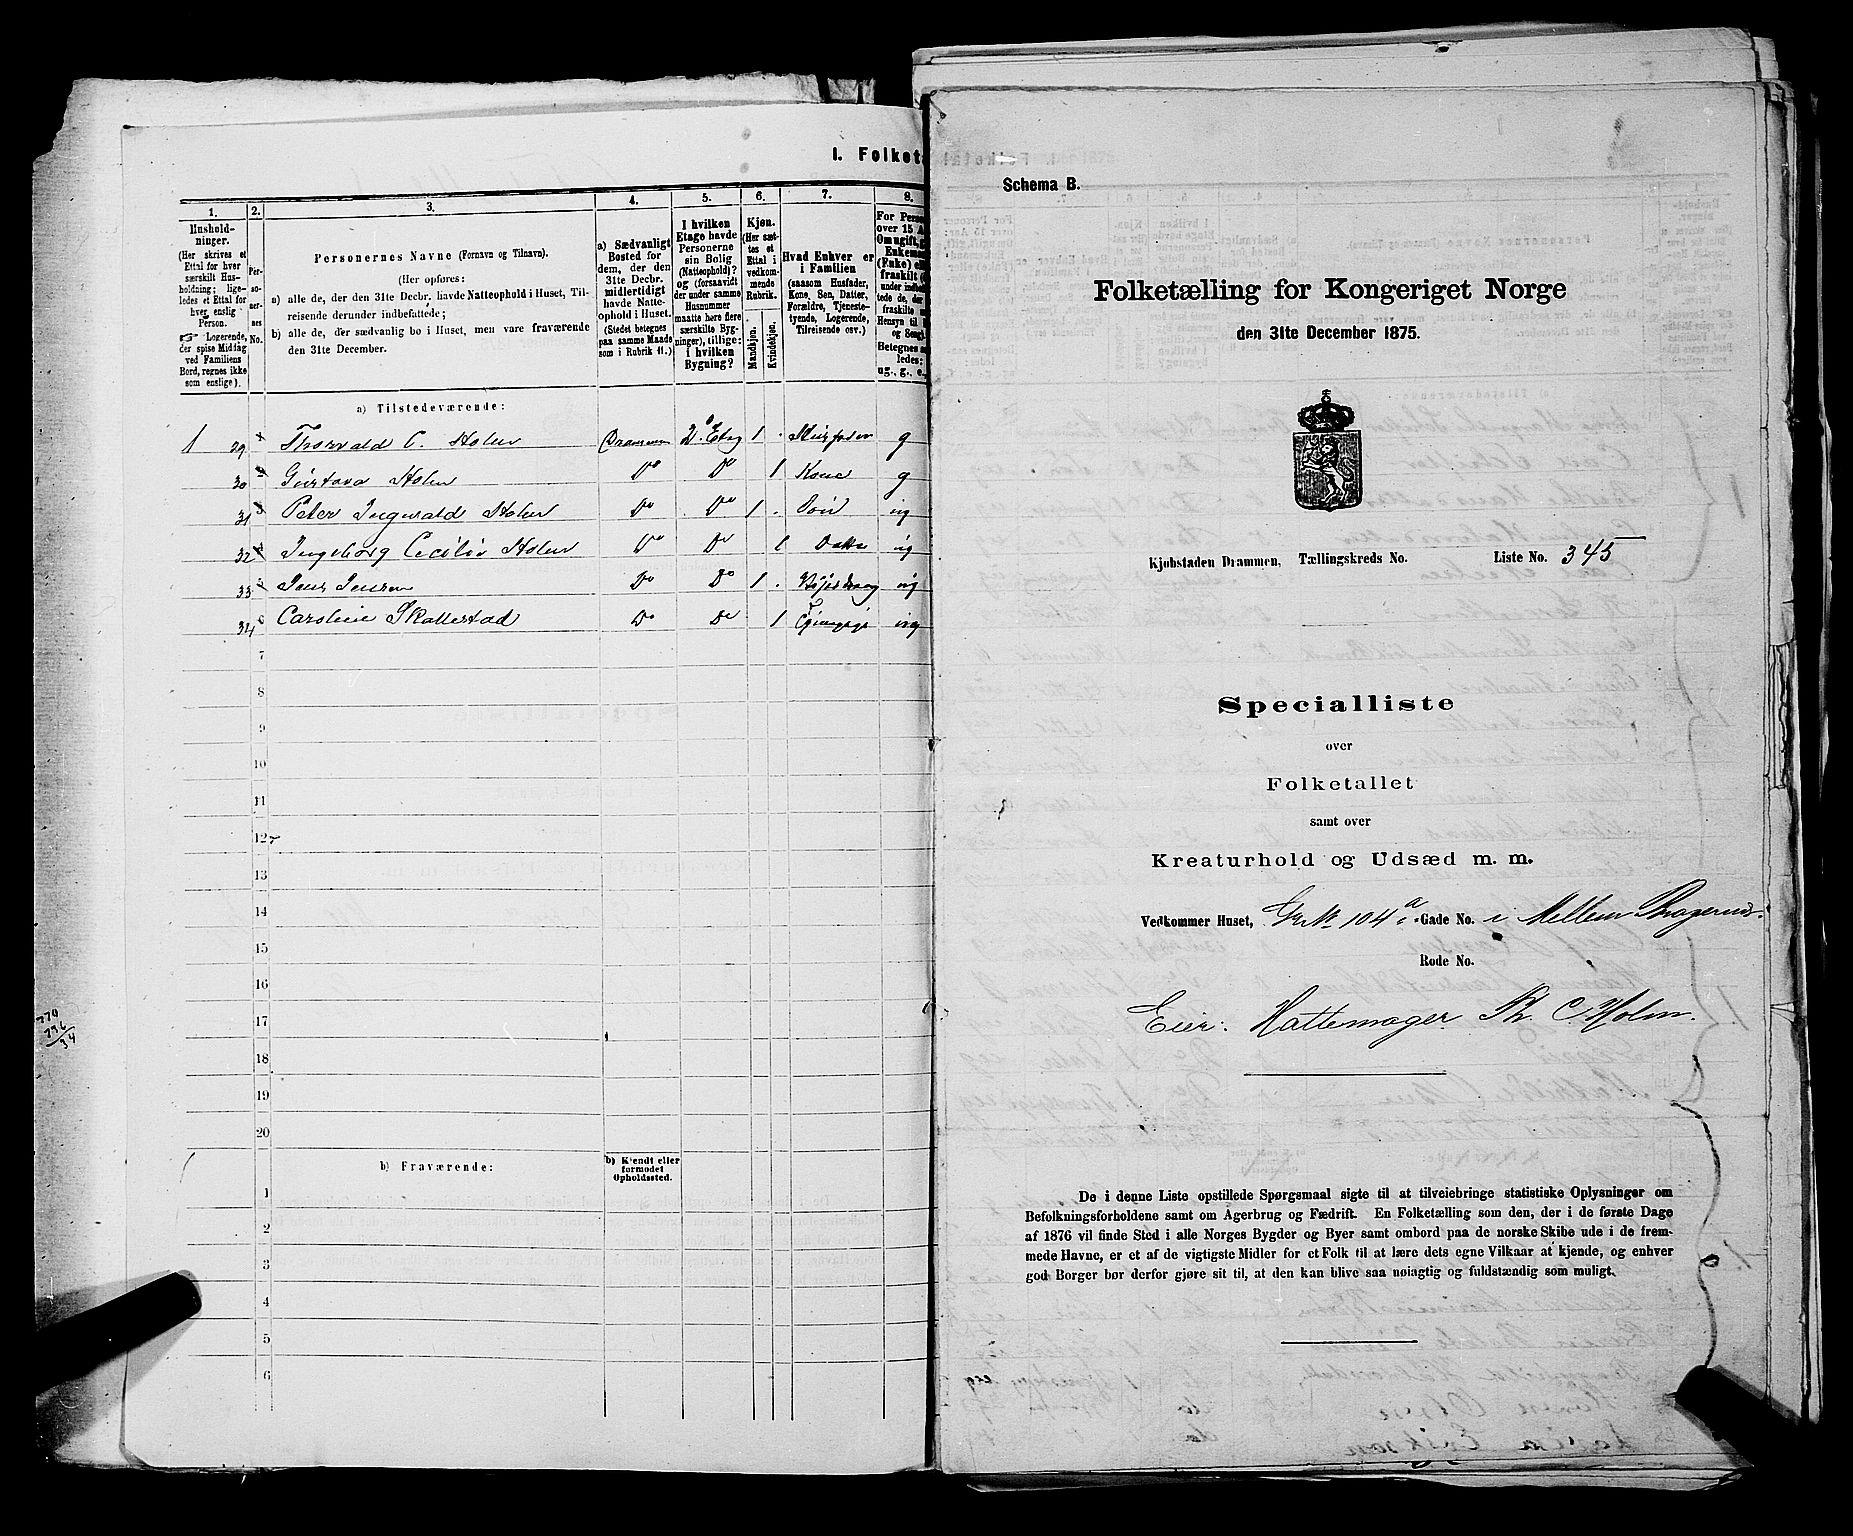 I. Folketa
1.
Hushold-
ninger.
(Her skrives et
Ettal for hver
særskilt Hus-
holdning; lige-
ledes et Ettal for
hver enslig
Person.
Logerende,
der spise Middag
ved Familiens
Bord, regnes ikke
som enslige).
2.
Per-
so-
ner-
nes
No.
3.
Personernes Navne (Fornavn og Tilnavn).
(Her opføres:
a) alle de, der den 31te Decbr. havde Natteophold i Huset, Til-
reisende derunder indbefattede;
b) alle de, der sædvanlig bo i Huset, men vare fraværende
den 31te December.
4.
a) Sædvanligt
Bosted for
dem, der den
31te Decbr.
midlertidigt
havde Natte-
ophold i Huset.
(Stedet betegnes
paa samme Maade
som i Rubrik 11.)
5.
I hvilken
Etage havde
Personerne
sin Bolig
(Natteophold)?
og (forsaavidt
der under samme
Husnummer
maatte høre flere
særskilte Byg-
ninger), tillige:
i hvilken
Bygning?
6.
Kjøn.
(Her sæt-
tes et
Ettal i
vedkom-
mende
Rubrik.)
Mandkjøn.
Kvindekjøn.
7.
Hvad Enhver er
i Familien
(saasom Husfader,
Kone, Søn, Datter,
Forældre, Tjeneste-
tyende, Logerende,
Tilreisende osv.)
8.
For Perso
over 15 A
Omugift, g
Enkema
(Enke) el
fraskilt (
under indb
tede de, der
fraskilte
Hensyn til
og Seng)
Betegnes s
ledes:
ug., g., e.,
a) Tilstedeværende:
1 29 Thorvald C. Holm Drammen 2. Etag 1 . Husfader g
30 Gustava Holm Do Do 1 Kone g
31 Peter Ingvald Holm Do Do 1 . Søn ug
32 Ingeborg Cecilie Holm Do Do 1 Datter ug
33 Jens Jensen Do Do 1 . ug
34 Caroline Skallestad Do Do 1 ug
7
8
9
10
11
12
13
14
15
16
17
18
19
20
b) Fraværende:
b) Kjendt eller
formodet
Opholdssted.
1
2
3
4
5
6
Schema B.
Folketælling for Kongeriget Norge
den 31te December 1875.
Kjøbstaden Drammen, Tællingskreds No. Liste No. 345
Specialliste
over
Folketallet
samt over
Kreaturhold og Udsæd m. m.
Vedkommer Huset, Gr. No 104a Gade No. i Mellem Bragernes
Rode No.
Eier: Hattemager Th. C. Holm.
De i denne Liste opstillede Spørgsmaal sigte til at tilveiebringe statistiske Oplysninger om
Befolkningsforholdene samt om Agerbrug og Fædrift. En Folketælling som den, der i de første Dage
af 1876 vil finde Sted i alle Norges Bygder og Byer samt ombord paa de norske Skibe ude i de frem-
mede Havne, er et af de vigtigste Midler for et Folk til at lære dets egne Vilkaar at kjende, og enhver
god Borger bør derfor gjøre sit til, at den kan blive saa nøiagtig og fuldstændig som muligt.